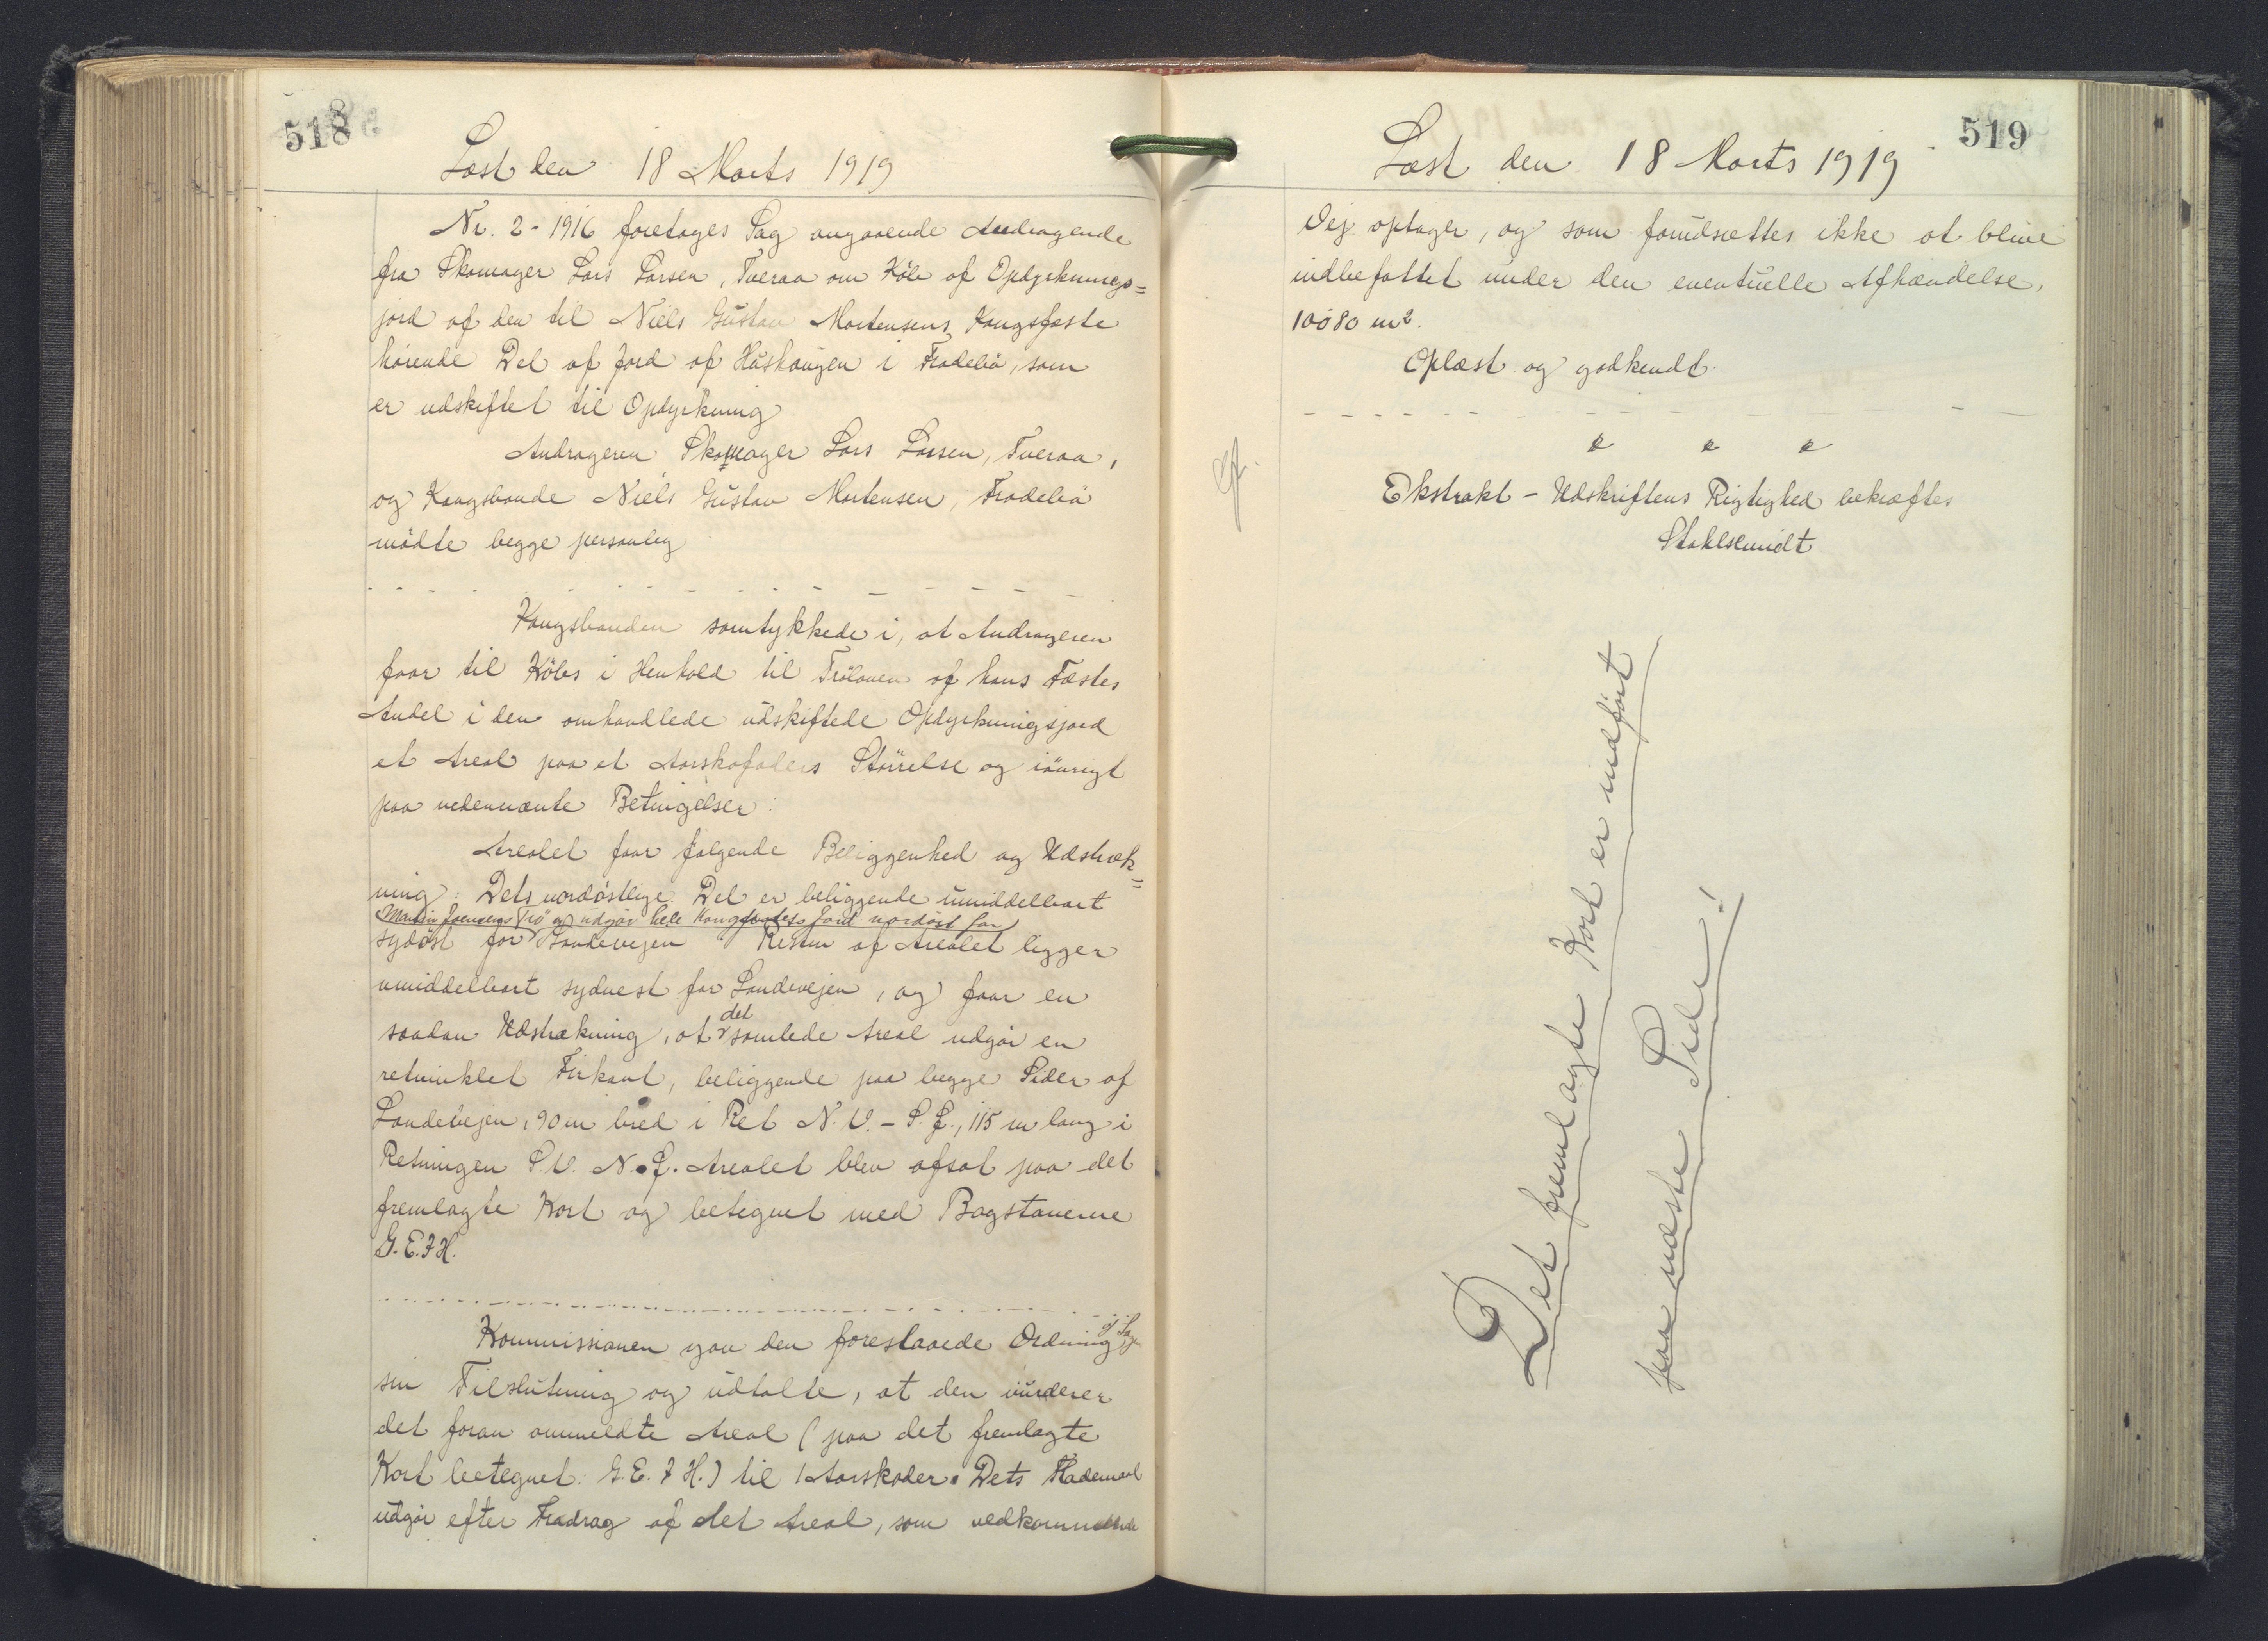 518
Læst den 18 Marts 1919
Nr. 2 - 1916 foretages Sag angaaende Andragende
fra Skomager Lars Larsen, Tveraa om Köb af Opdyrknings=
jord af den til Niels Gustav Mortensens Kongsfæste
hörende Del af Jord af Húshaugen i Frodebö, som
er udskiftet til Opdyrkning
Andrageren Skomager Lars Larsen, Tveraa,
og Kongsbonde Niels Gustav Mortensen, Frodebö
mödte begge personlig
Kongsbonden samtykkede i, at Andrageren
faar til Köbs i Henhold til Tröloven af hans Fæstes
Andel i den omhandlede udskiftede Opdyrkningsjord
et Areal paa et Aarskofoders Störrelse og iövrigt
paa nedennævnte Betingelser:
Arealet faar fölgende Beliggenhed og Udstræk=
ning: Dets nordöstlige Del er beliggende umiddelbart
Martin Joensens Trö og udgör hele Kongsfæstes Jord nordöst for
sydöst for Landevejen Resten af Arealet ligger
umiddelbart sydvest for Landevejen, og faar en
saadan Udstrækning, at det samlede Areal udgör en
retvinklet Firkant, beliggende paa begge Sider af
Landevejen, 90 m bred i Ret N.V. - S.Ø., 115 m lang i
Retningen S.V. N.Ø. Arealet blev afsat paa det
fremlagte Kort og betegnet med Bogstaverne
G.E.F.H.
Kommissionen gav den foreslaaede Ordning af Sag
sin Tilslutning og udtalte, at den vurderer
det foran ommeldte Areal (paa det fremlagte
Kort betegnet: G.E.F.H.) til 1 Aarskoder. Dets Flademaal
udgör efter Fradrag af det Areal, som vedkommende
519
Læst den 18 Marts 1919
Vej optager, og som forudsættes ikke at blive
indbefattet under den eventuelle Afhændelse,
10080 m2.
Oplæst og godkendt
Ekstrakt - Udskriftens Rigtighed bekræftes
Stahlschmidt
Det fremlagte Kort er indført
paa næste Side!